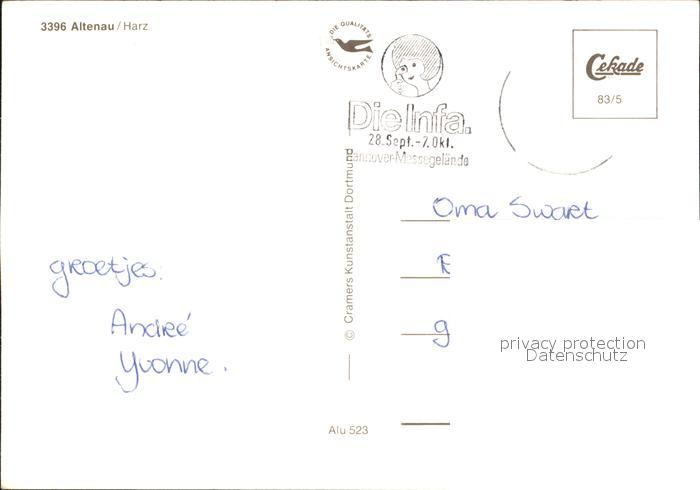 3396 Altenau / Harz
DIE QUALITÄTS
ANSICHTSKARTE
Die Infa.
28. Sept. - 7. Okt.
Hannover-Messegelände
Cekade
83/5
© Cramers Kunstanstalt Dortmund
Oma Swart
groetjes:
André
Yvonne.
g
privacy protection
Datenschutz
Alu 523